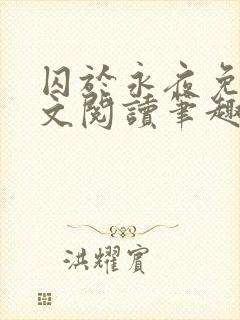 囚於永夜免
文閱讀筆趣
洪耀賓